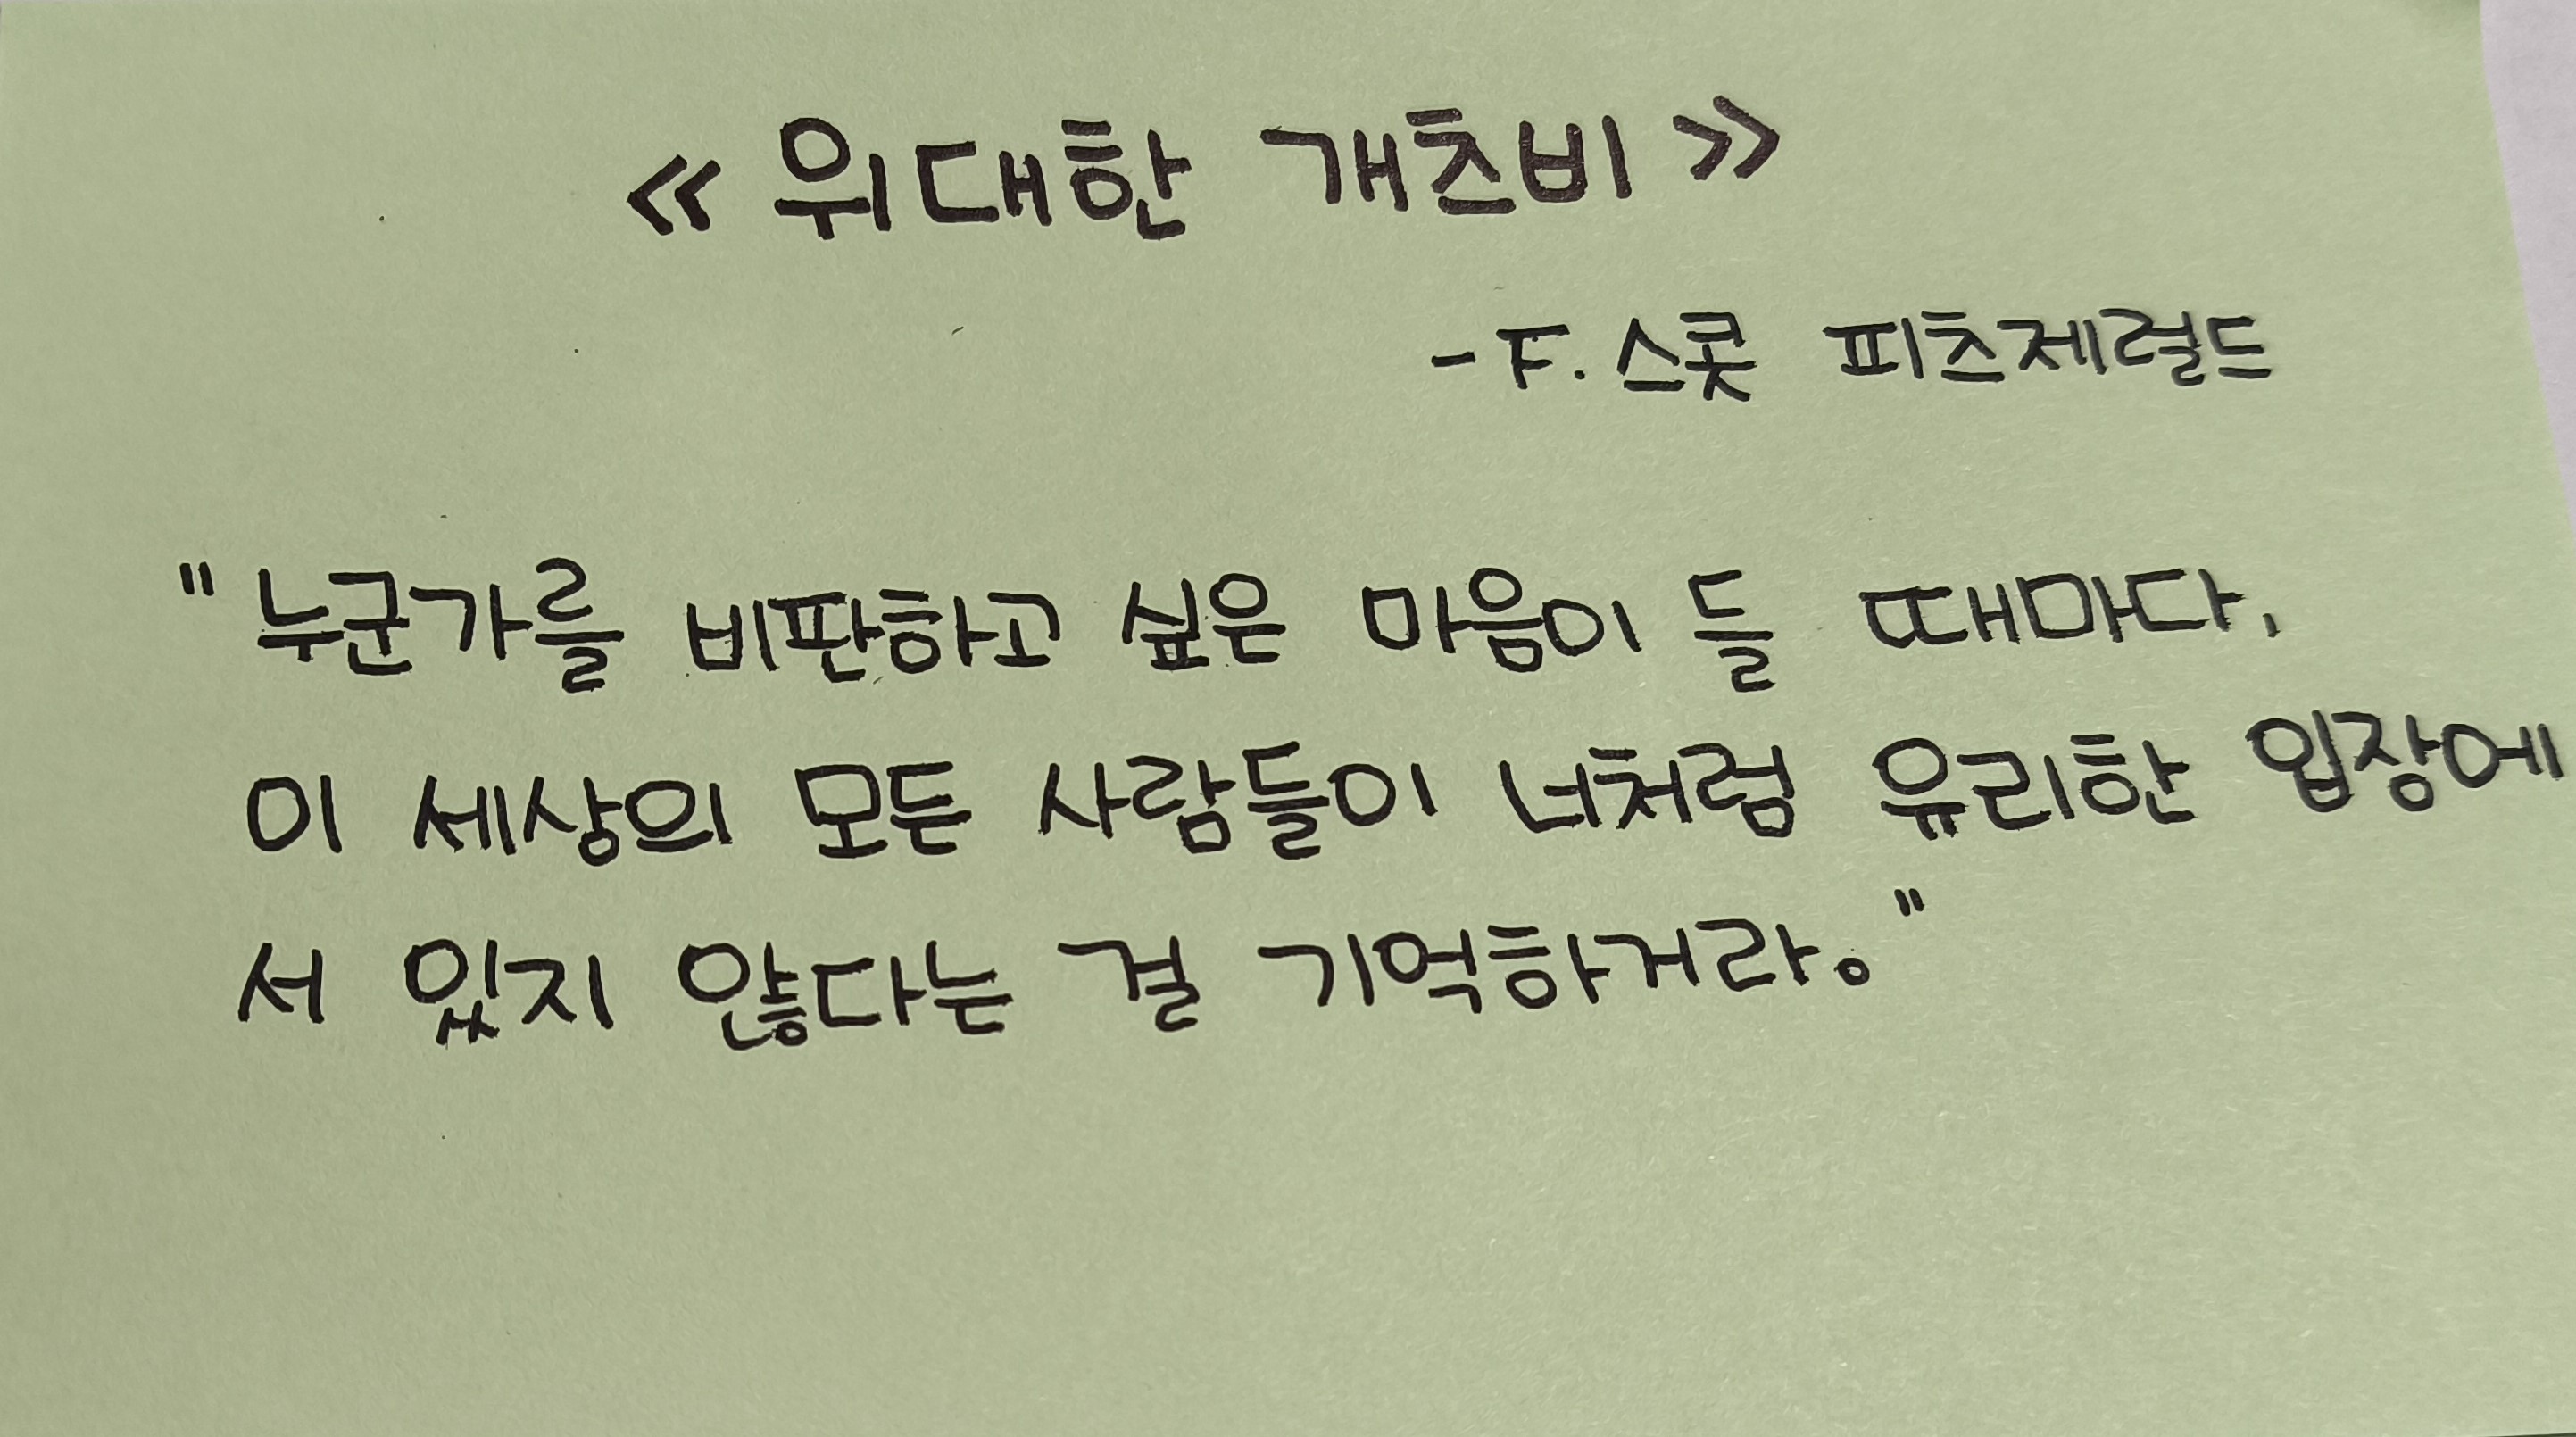 《위대한 개츠비》
-F. 스콧 피츠제럴드
"누군가를 비판하고 싶은 마음이 들 때마다,
이 세상의 모든 사람들이 너처럼 유리한 입장에
서 있지 않다는 걸 기억하거라。"